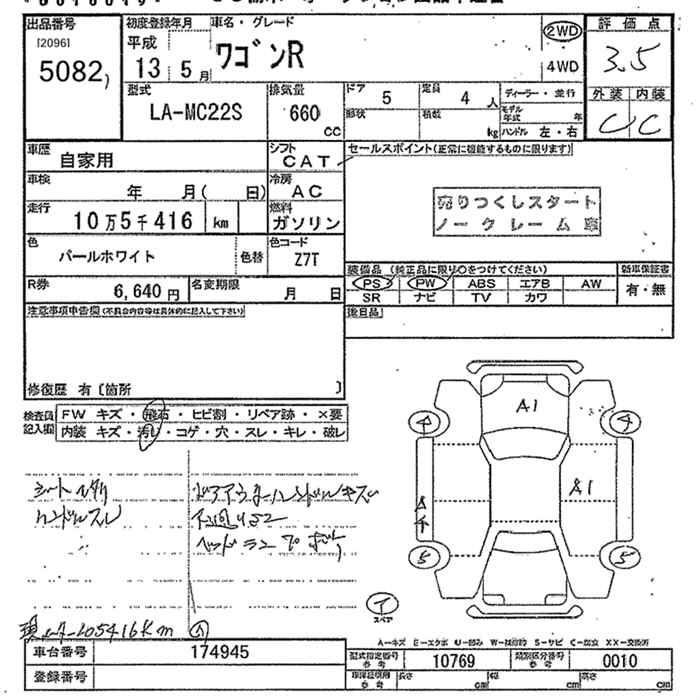 出品番号
[20961
5082
初度登録年月
平成
13 5月
車名・グレード
ワゴンR
2WD
4WD
評価点
3.5
外装 内装
C C
型式
LA-MC22S
排気量
660
CC
ドア
5
定員
4人
形状
積載
kg
ディーラー・並行
モデル年式 年
ハンドル 左・右
車歴
自家用
シフト
CAT
セールスポイント(正常に機能するものに限ります)
売りつくしスタート
ノークレーム車
車検
年 月( 日)
冷房
AC
走行
10万5千416 km
燃料
ガソリン
色
パールホワイト
色替
色コード
Z7T
装備品 (純正品に限り○をつけてください)
新車保証書
PS PW ABS エアB AW
SR ナビ TV カワ
有・無
R券
6,640円
名変期限
月 日
後日品
注意事項申告欄(不具合内容等は具体的に記入して下さい)
修復歴 有〔箇所 〕
検査員
記入欄
FW キズ・飛石・ヒビ割・リペア跡・×要
内装 キズ・汚レ・コゲ・穴・スレ・キレ・破レ
ハンドルスレ
A1
A1
4
4
5
5
スペア
105416Km
A-キズ E-エクボ U-凹み W-補修跡 S-サビ C-腐食 XX-交換済
車台番号
174945
登録番号
型式指定番号
参考
10769
類別区分番号
参考
0010
長さ cm
幅 cm
高さ cm